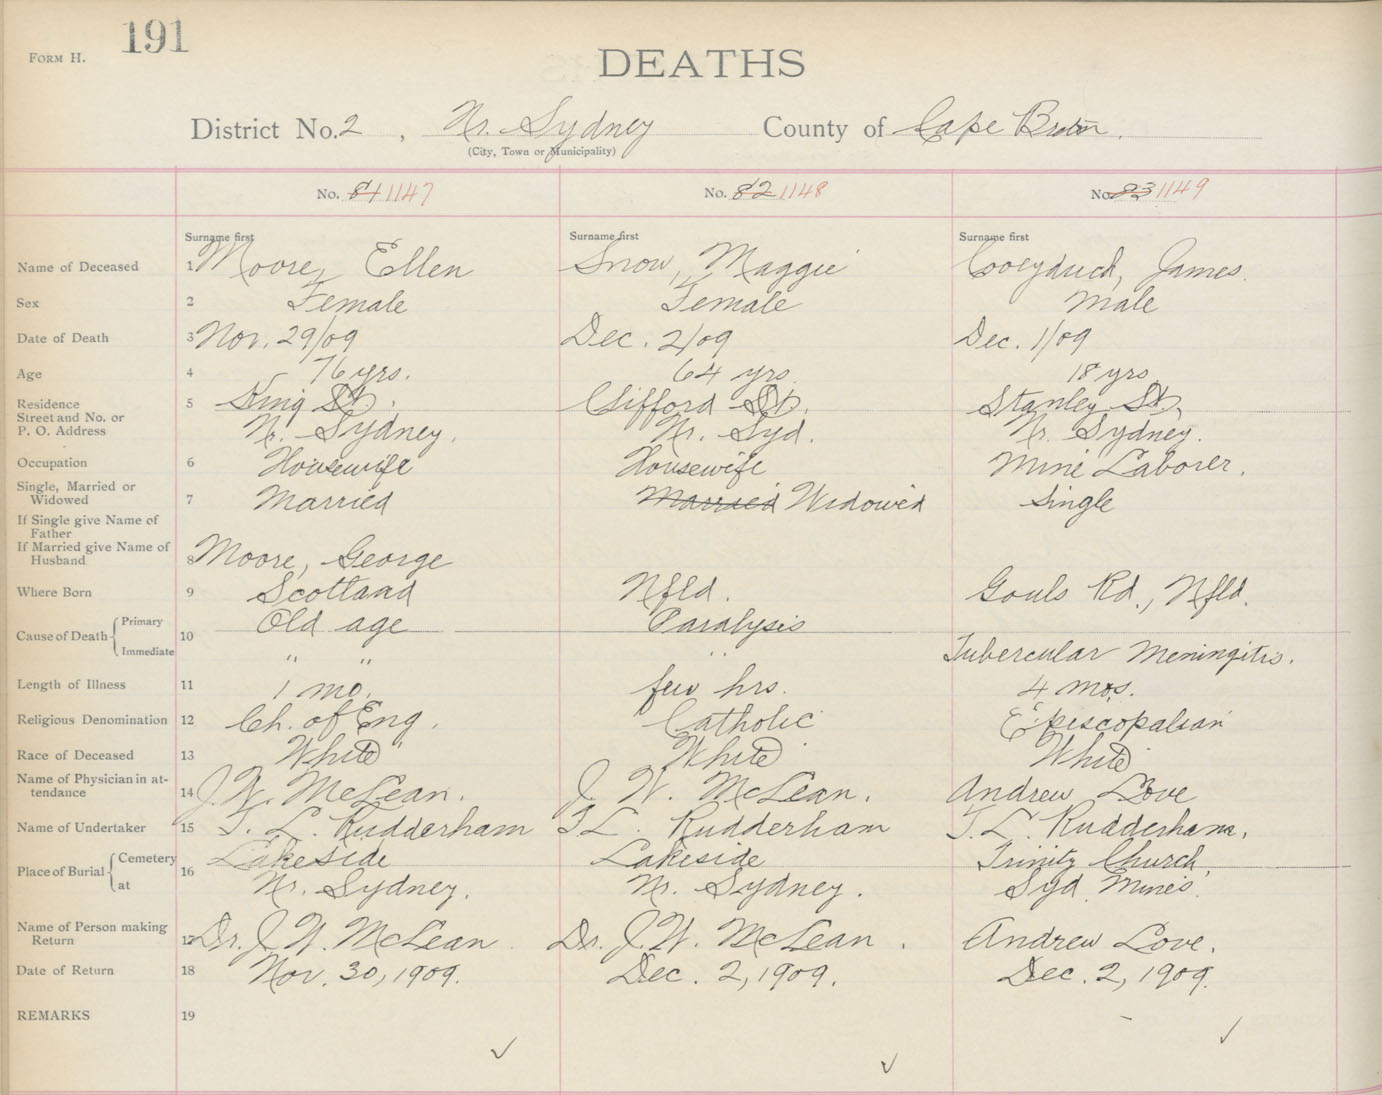 191
FORM H.
DEATHS
District No. 2, Nr. Sydney County of Cape Breton.
(City, Town or Municipality)
No. 81 1147 No. 82 1148 No. 83 1149
Surname first Surname first Surname first
Name of Deceased 1 Moore, Ellen Snow, Maggie James.
Sex 2 Female Female Male
Date of Death 3 Nov. 29/09 Dec. 2/09 Dec. 1/09
Age 4 76 yrs. 64 yrs. 18 yrs
Residence 5 King St. Clifford St. Stanley St.
Street and No. or
P. O. Address Nr. Sydney. Nr. Syd. Nr. Sydney.
Occupation 6 Housewife Housewife Mine Laborer.
Single, Married or
Widowed 7 Married Married Widowed Single
If Single give Name of
Father
If Married give Name of
Husband 8 Moore, George
Where Born 9 Scotland Nfld. Gouls Rd., Nfld.
Cause of Death Primary 10 Old age Paralysis
Immediate " " " Tubercular Meningitis.
Length of Illness 11 1 mo. few hrs. 4 mos.
Religious Denomination 12 Ch. of Eng. Catholic Episcopalian
Race of Deceased 13 White White White
Name of Physician in at-
tendance 14 J. W. McLean. J. W. McLean. Andrew Love
Name of Undertaker 15 T. L. Rudderham T L. Rudderham T. L. Rudderham.
Place of Burial Cemetery 16 Lakeside Lakeside Trinity Church,
at Nr. Sydney. Nr. Sydney. Syd. Mines.
Name of Person making
Return 17 Dr. J. W. McLean Dr. J. W. McLean. Andrew Love.
Date of Return 18 Nov. 30, 1909. Dec. 2, 1909. Dec. 2, 1909.
REMARKS 19